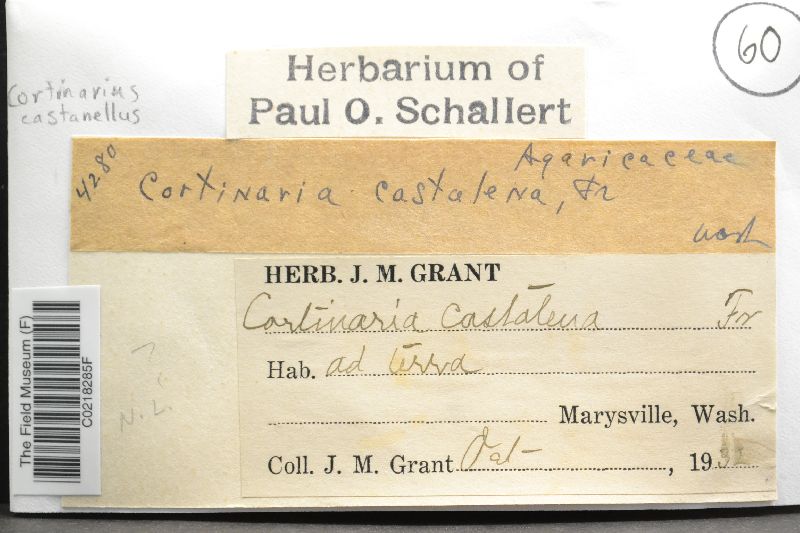 60
Cortinarius
castanellus
Herbarium of
Paul O. Schallert
4280
Agaricaceae
Cortinaria castalena, Fr
Wash
HERB. J. M. GRANT
Cortinaria castalena Fr
Hab. ad terra
Marysville, Wash.
Coll. J. M. Grant Oct- , 193
?
N.L.
The Field Museum (F)
C0218285F